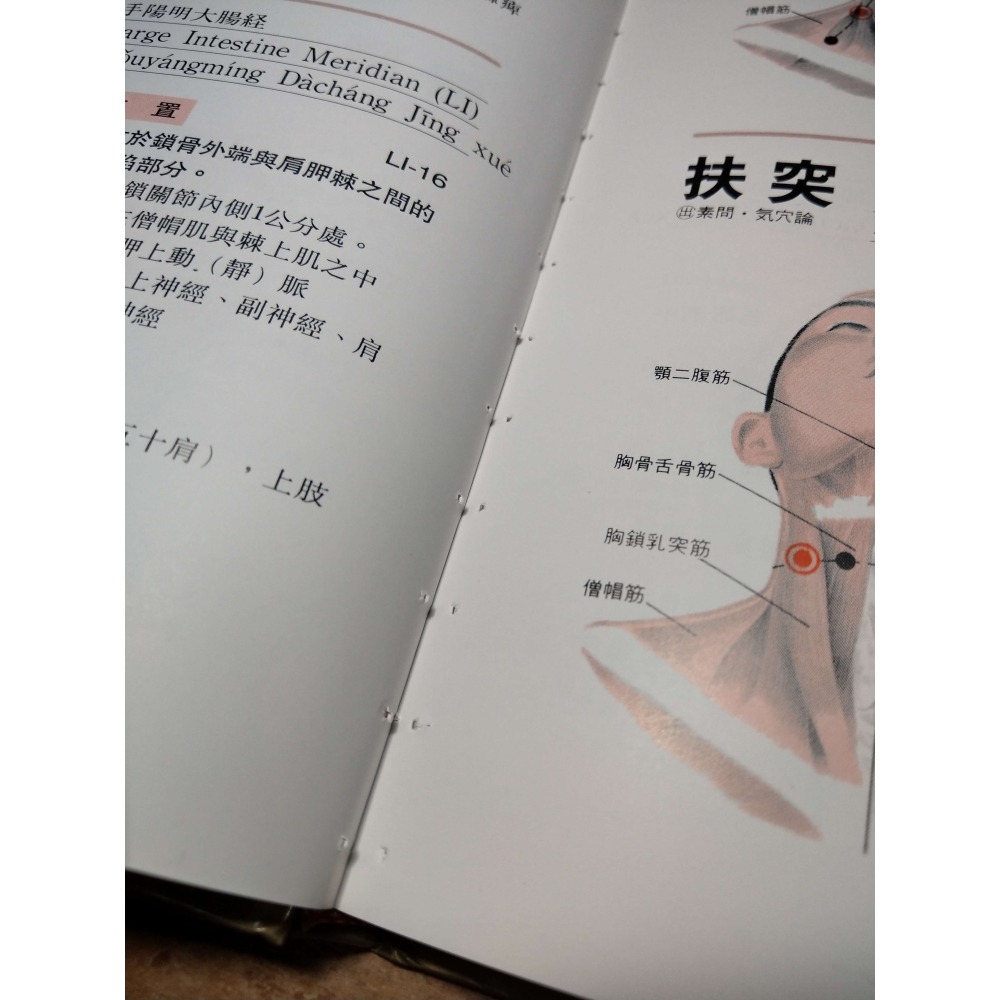 手陽明大腸経
arge Intestine Meridian (LI)
ǒuyángmíng Dàcháng Jīng xué
置
LI-16
於鎖骨外端與肩胛棘之間的
陷部分。
鎖關節內側1公分處。
僧帽肌與棘上肌之中
胛上動（靜）脈
上神經、副神經、肩
神經
五十肩），上肢
僧帽筋
扶突
出素問・気穴論
顎二腹筋
胸骨舌骨筋
胸鎖乳突筋
僧帽筋